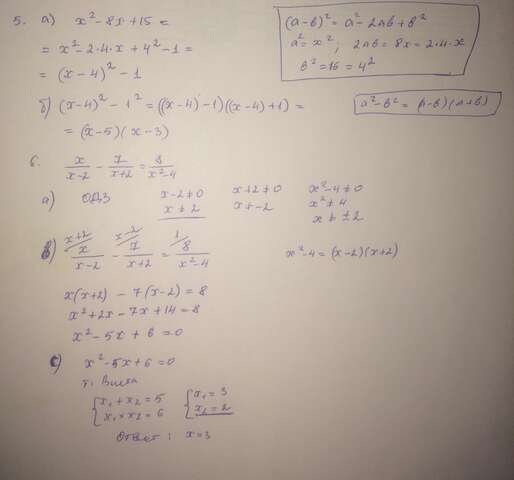 5. а) x² - 8x + 15 =
= x² - 2·4·x + 4² - 1 =
= (x - 4)² - 1
(a - b)² = a² - 2ab + b²
a² = x² ; 2ab = 8x = 2·4·x
b² = 16 = 4²
б) (x-4)² - 1² = ((x-4) - 1)((x-4) + 1) =
= (x-5)(x-3)
a² - b² = (a-b)(a+b)
6. x/(x-2) - 7/(x+2) = 8/(x²-4)
а) ОДЗ x-2≠0 x+2≠0 x²-4≠0
x≠2 x≠-2 x²≠4
x≠±2
в) x+2/ x/(x-2) - x-2/ 7/(x+2) = 1/ 8/(x²-4) x²-4 = (x-2)(x+2)
x(x+2) - 7(x-2) = 8
x² + 2x - 7x + 14 = 8
x² - 5x + 6 = 0
с) x² - 5x + 6 = 0
т. Виета
{ x₁ + x₂ = 5 { x₁ = 3
x₁ × x₂ = 6 x₂ = 2
Ответ : x = 3